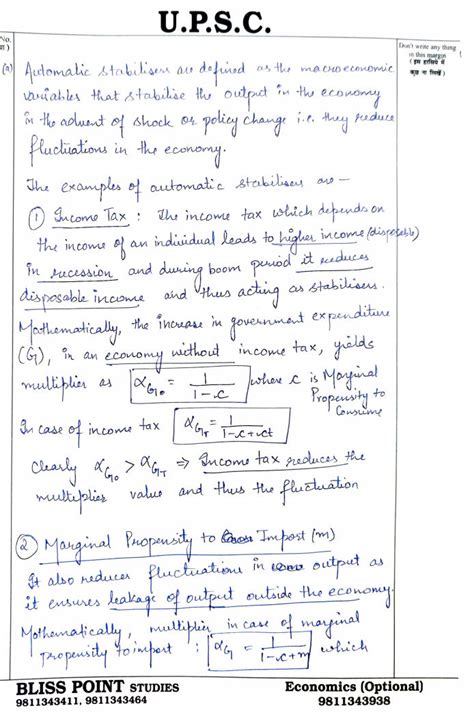 U.P.S.C.
No.
Don't write any thing
in this margin
(इस हाशिये में
कुछ ना लिखें)
(a) Automatic stabilisers are defined as the macroeconomic
variables that stabilise the output in the economy
in the advent of shock or policy change i.e. they reduce
fluctuations in the economy.
The examples of automatic stabilisers are —
① Income Tax : The income tax which depends on
the income of an individual leads to higher income (disposable)
in recession and during boom period it reduces
disposable income and thus acting as stabilisers.
Mathematically, the increase in government expenditure
(G), in an economy without income tax, yields
multiplier as αG₀ = 1/(1-c) where c is Marginal
Propensity to
Consume
In case of income tax αG_T = 1/(1-c+ct)
Clearly αG₀ > αG_T ⇒ Income tax reduces the
multiplier value and thus the fluctuation
② Marginal Propensity to Import (m)
It also reduces fluctuations in output as
it ensures leakage of output outside the economy.
Mathematically, multiplier in case of marginal
propensity to import : αG = 1/(1-c+m) which
BLISS POINT STUDIES
9811343411, 9811343464
Economics (Optional)
9811343938